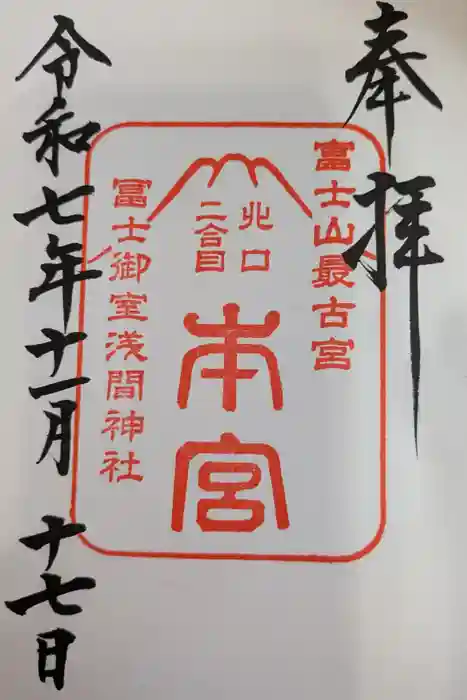 奉拝
冨士山最古宮
北口
二合目
本宮
冨士御室浅間神社
令和七年十一月十七日